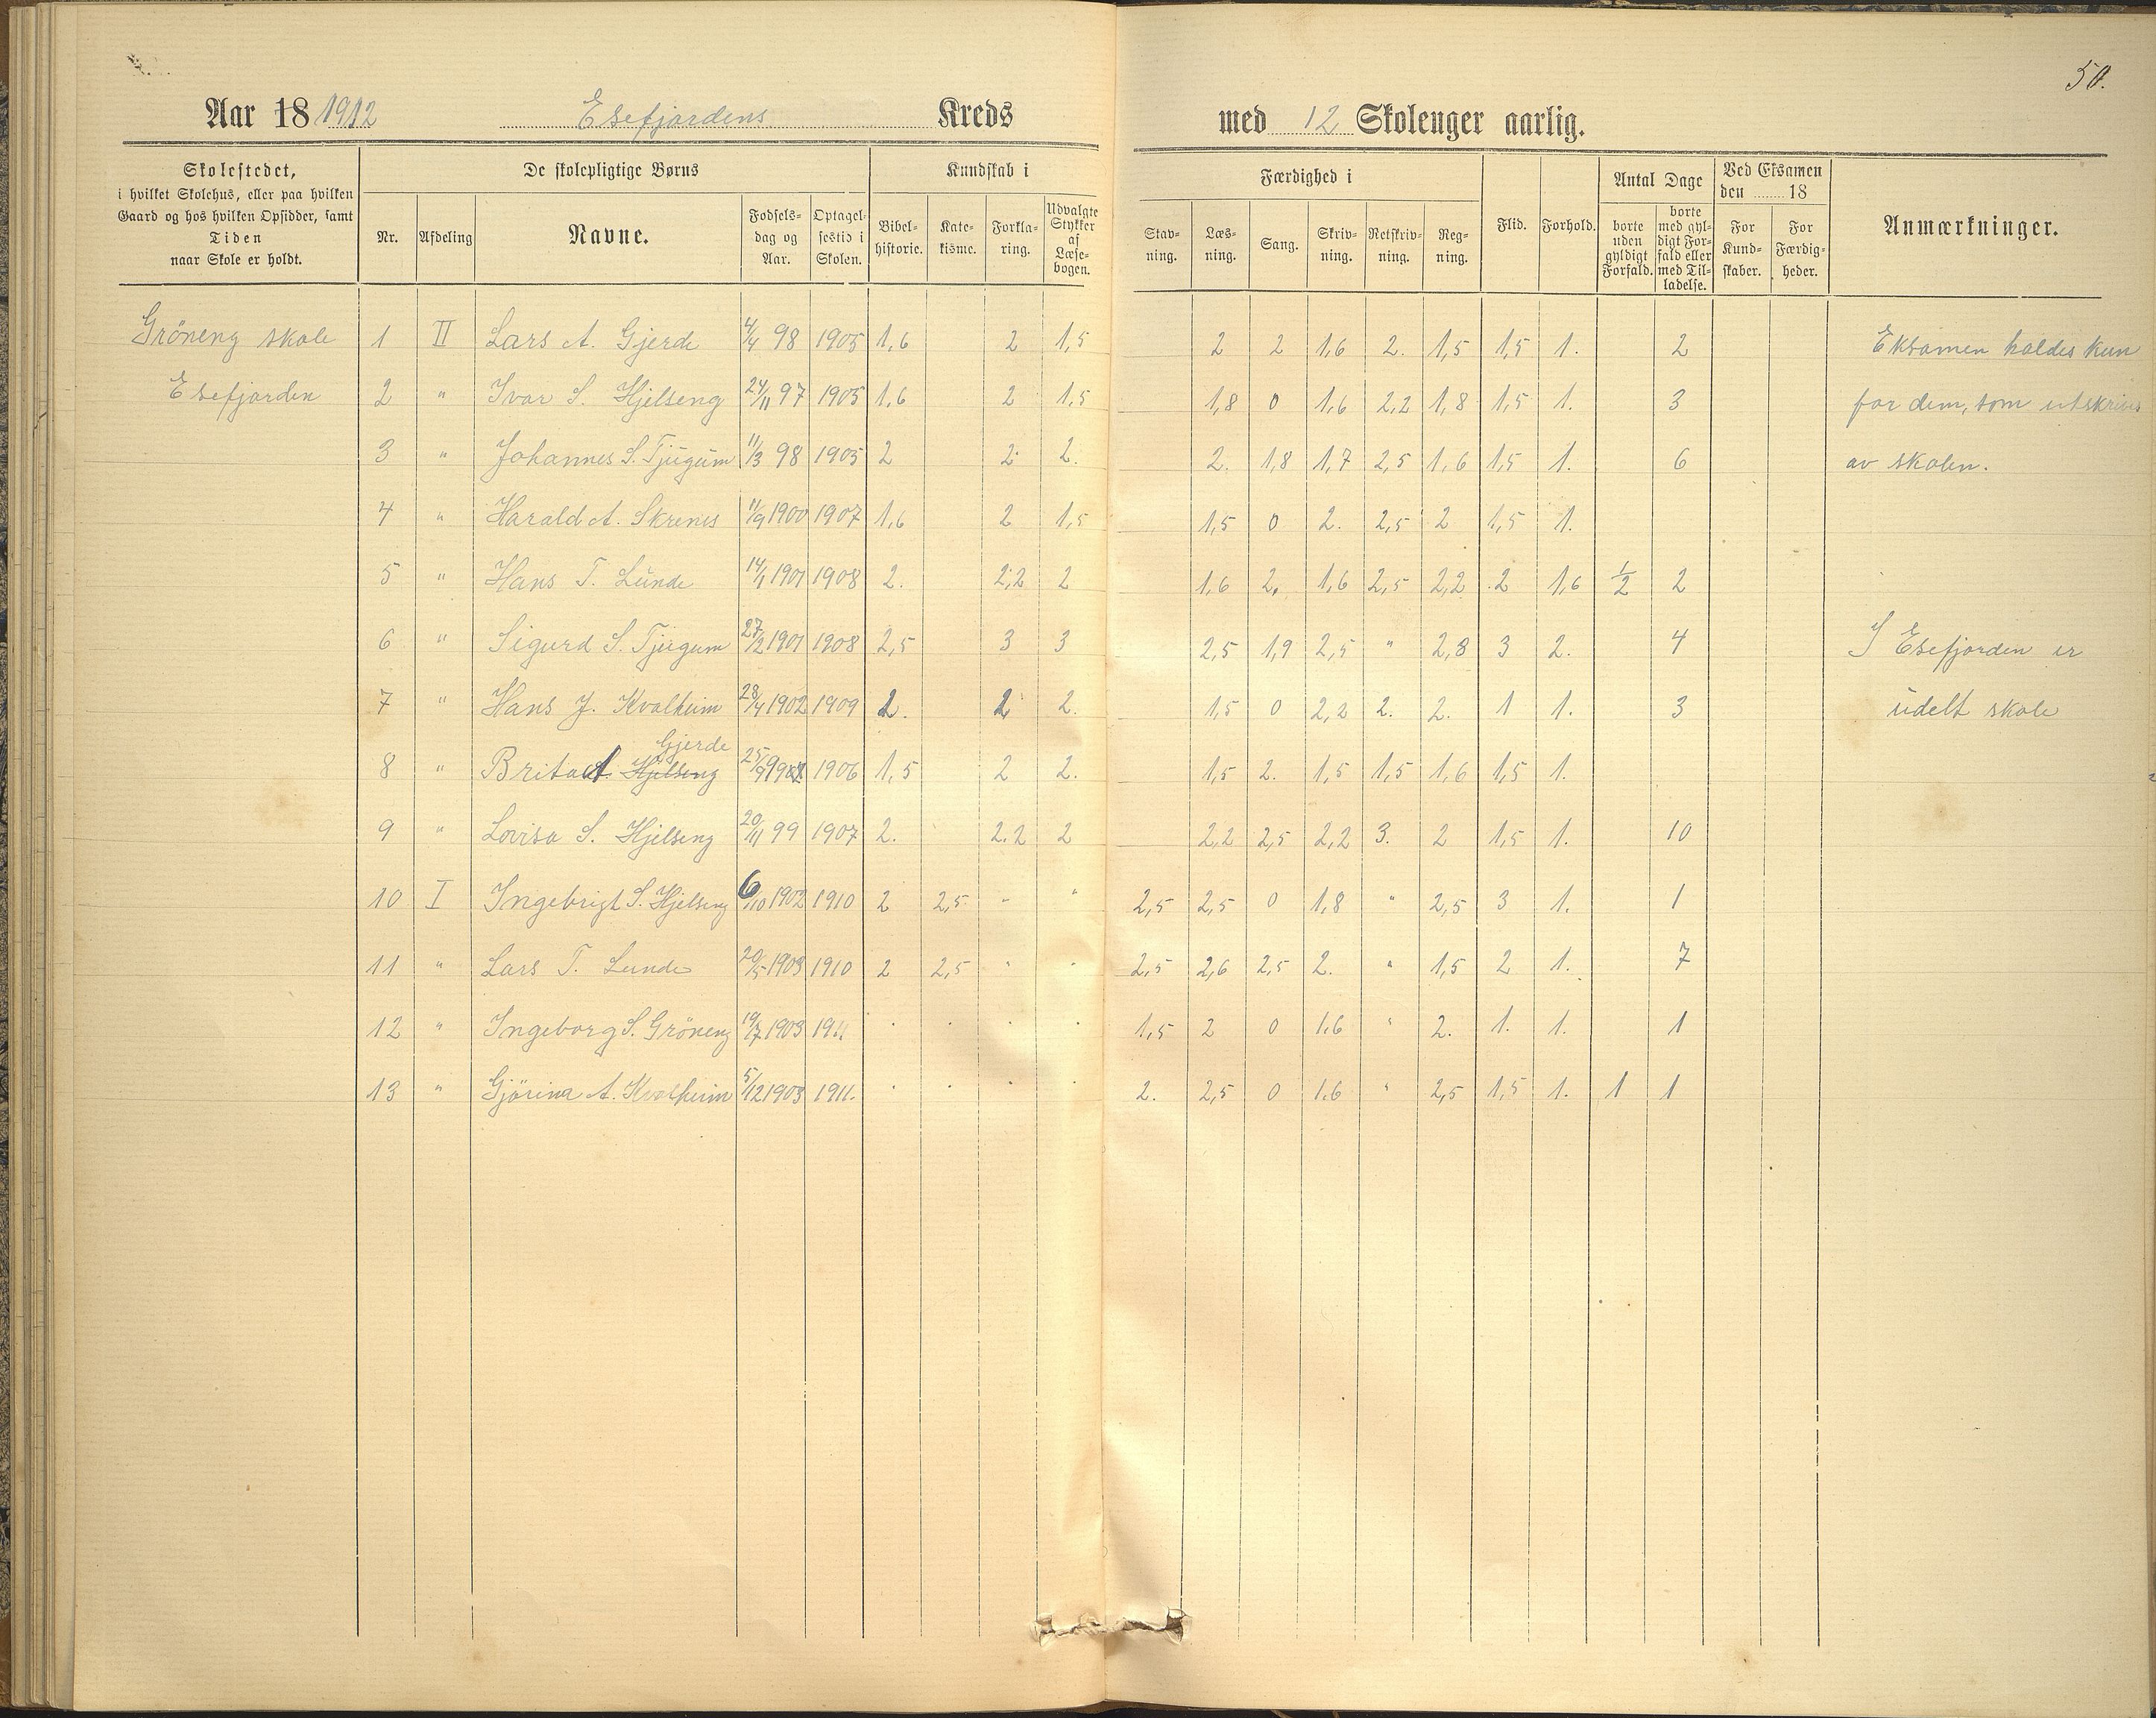 50.
Aar 18 1912 Esefjordens Kreds med 12 Skoleuger aarlig.
Skolestedet,
i hvilket Skolehus, eller paa hvilken
Gaard og hos hvilken Opsidder, samt
Tiden
naar Skole er holdt.
De skolepligtige Børns
Nr.
Afdeling
Navne.
Fødsels-
dag og
Aar.
Optagel-
sestid i
Skolen.
Kundskab i
Bibel-
historie.
Kate-
kisme.
Forkla-
ring.
Udvalgte
Stykker
af
Læse-
bogen.
Færdighed i
Stav-
ning.
Læs-
ning.
Sang.
Skriv-
ning.
Retskriv-
ning.
Reg-
ning.
Flid.
Forhold.
Antal Dage
borte
uden
gyldigt
Forfald.
borte
med gyl-
digt For-
fald eller
med Til-
ladelse.
Ved Eksamen
den ........ 18
For
Kund-
skaber.
For
Færdig-
heder.
Anmærkninger.
Gröneng skole 1 II Lars A. Gjerde 4/4 98 1905 1,6 2 1,5 2 2 1,6 2. 1,5 1,5 1. 2 Eksamen holdes kun
Esefjorden 2 " Ivar S. Hjelseng 24/11 97 1905 1,6 2 1,5 1,8 0 1,6 2,2 1,8 1,5 1. 3 for dem, som utskrives
3 " Johannes S. Tjugum 11/3 98 1905 2 2 2. 2. 1,8 1,7 2,5 1,6 1,5 1. 6 av skolen.
4 " Harald A. Skrenes 11/9 1900 1907 1,6 2 1,5 1,5 0 2. 2,5 2 1,5 1.
5 " Hans T. Lunde 14/1 1901 1908 2. 2,2 2 1,6 2. 1,6 2,5 2,2 2 1,6 1/2 2
6 " Sigurd S. Tjugum 27/2 1901 1908 2,5 3 3 2,5 1,9 2,5 " 2,8 3 2. 4 I Esefjorden er
7 " Hans J. Kvalheim 28/4 1902 1909 2. 2 2. 1,5 0 2,2 2. 2. 1 1. 3 udelt skole
Gjerde
8 " Brita A. Hjelseng 25/9 1906 1,5 2 2. 1,5 2. 1,5 1,5 1,6 1,5 1.
9 " Lovisa S. Hjelseng 20/11 99 1907 2. 2.2 2 2,2 2,5 2,2 3. 2 1,5 1. 10
10 I Ingebrigt S. Hjelseng 6/10 1902 1910 2 2,5 " " 2,5 2,5 0 1,8 " 2,5 3 1. 1
11 " Lars T. Lunde 20/5 1903 1910 2 2,5 " " 2,5 2,6 2,5 2. " 1,5 2 1. 7
12 " Ingeborg S. Gröneng 19/7 1903 1911. 1,5 2 0 1.6 " 2. 1. 1. 1
13 " Gjörina A. Kvalheim 5/12 1903 1911. 2. 2,5 0 1.6 " 2,5 1,5 1. 1 1